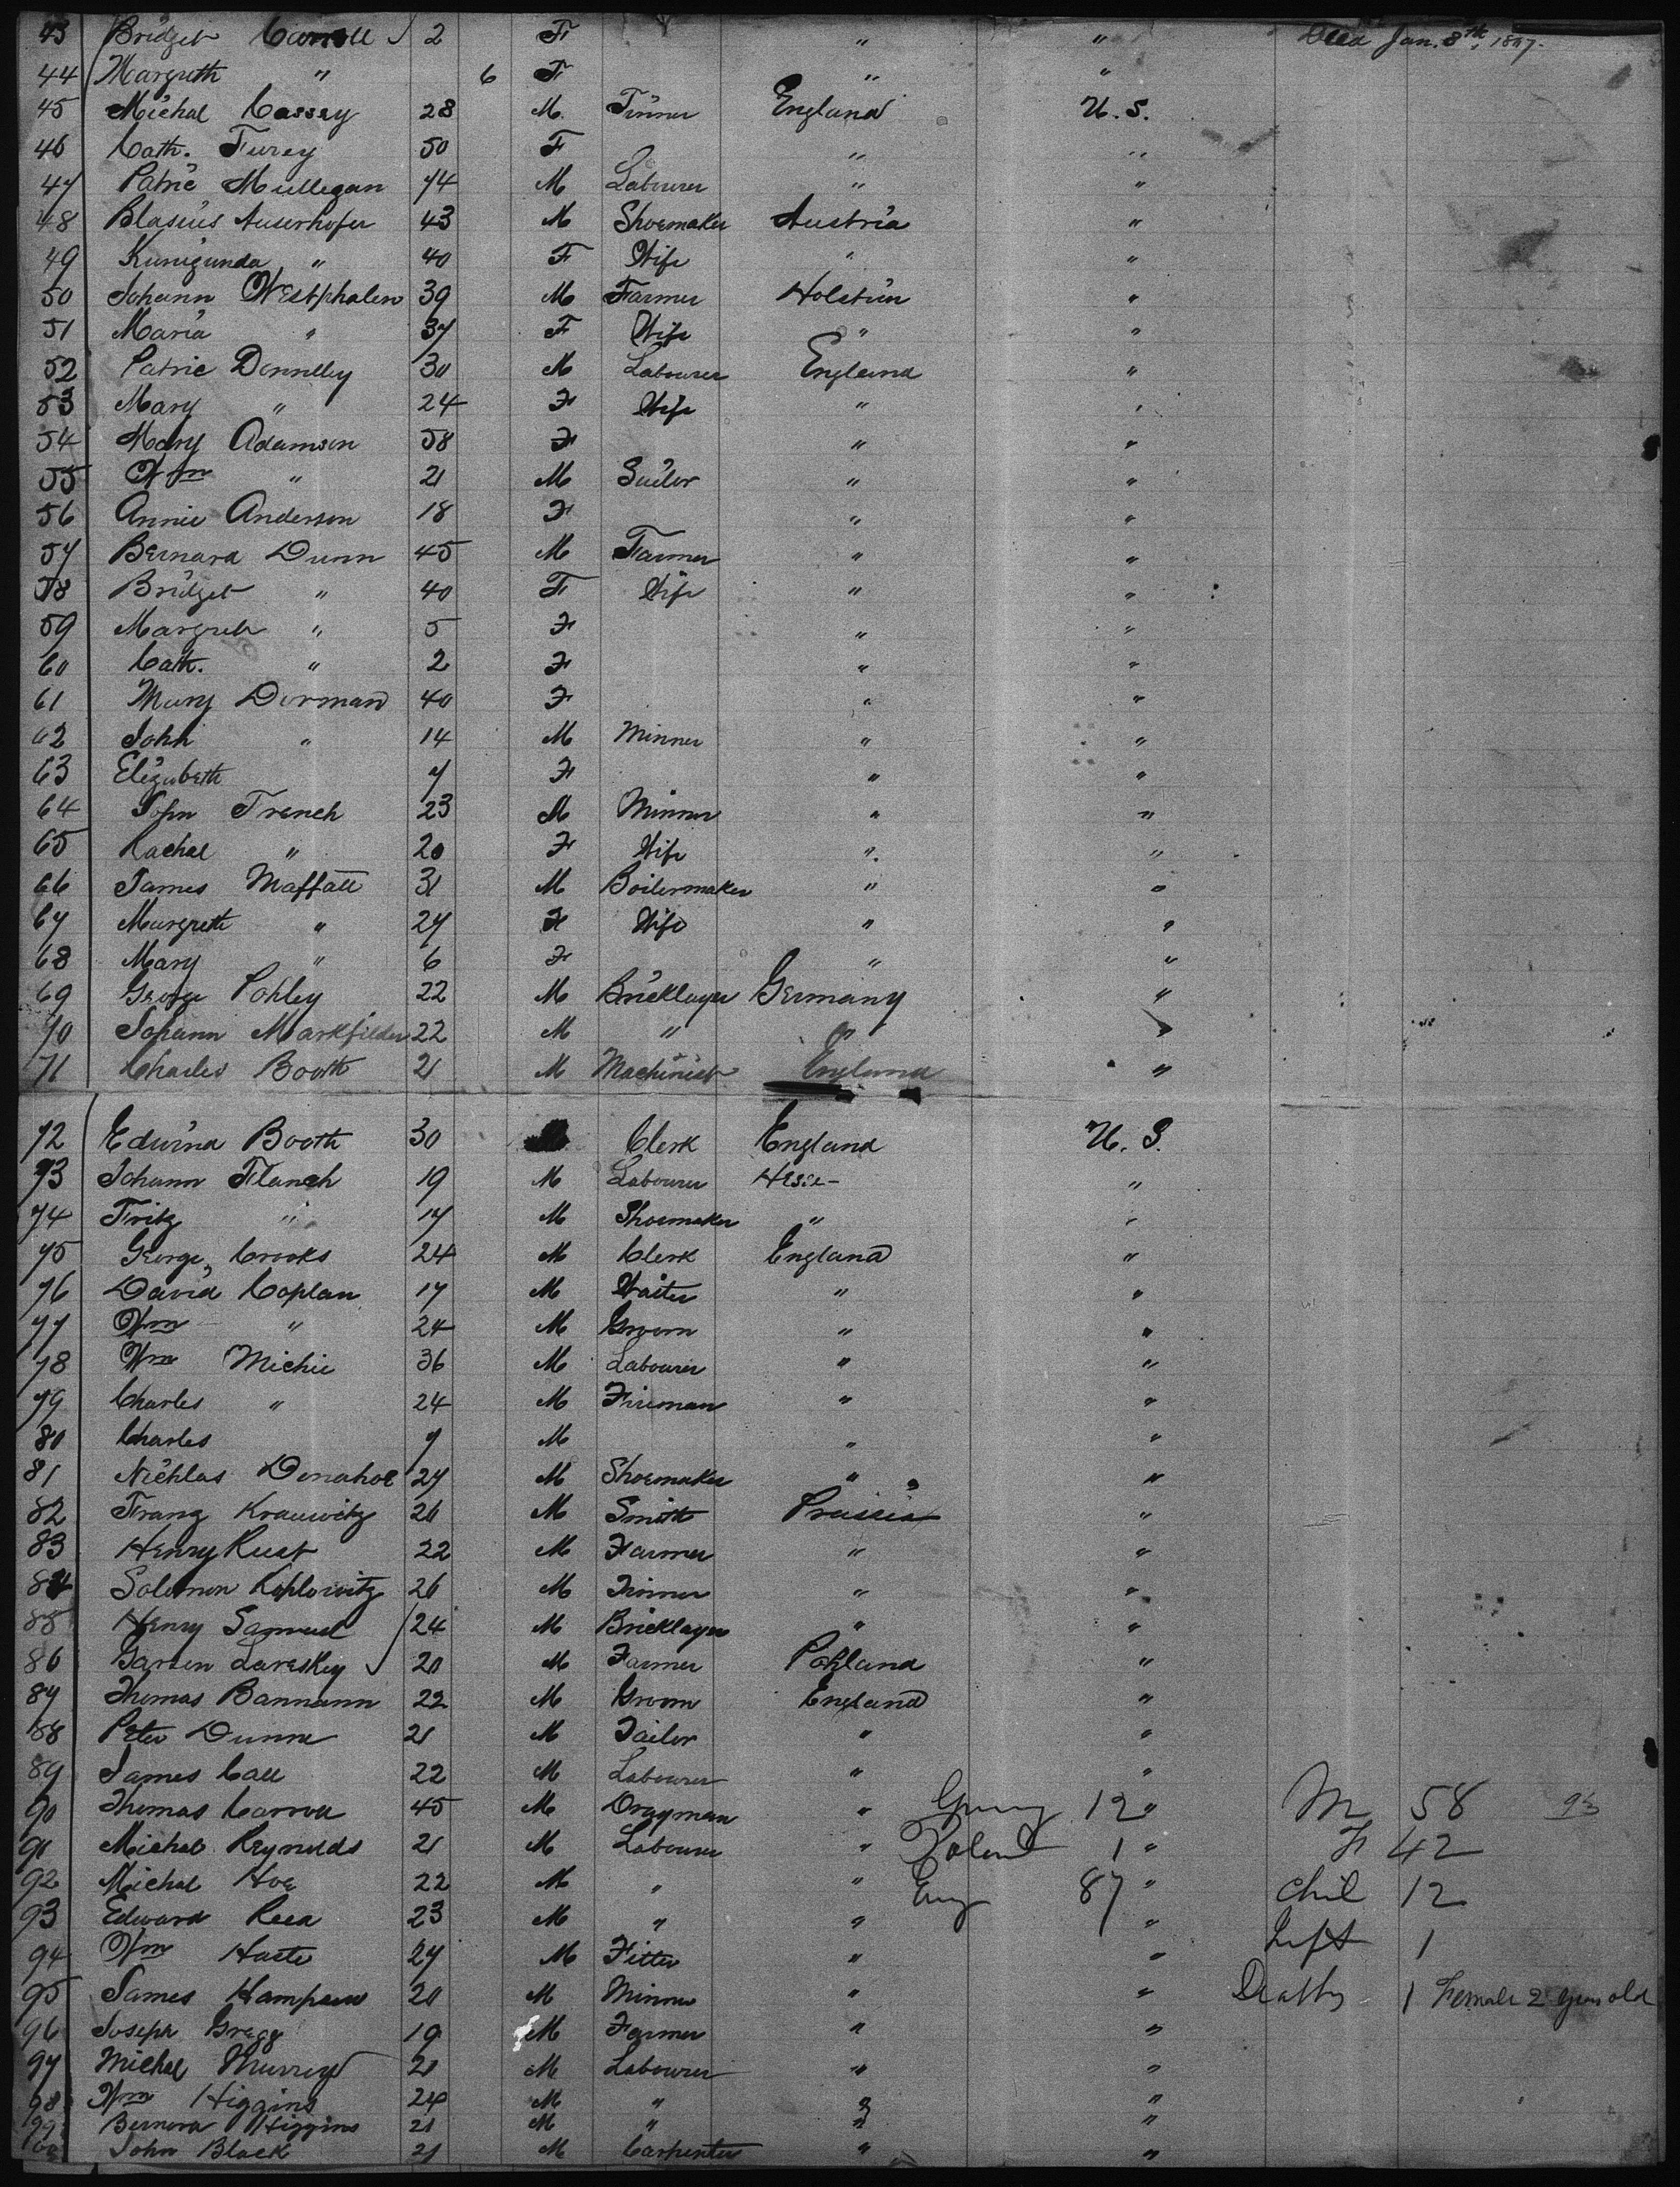 43 Bridget Carroll 2 F " " Died Jan. 8th, 1867.
44 Margreth " 6 F " "
45 Michal Cassey 28 M. Tinner England U. S.
46 Cath. Furey 50 F " "
47 Patric Mullegan 74 M Labourer " "
48 Blasius Auserhofer 43 M Shoemaker Austria "
49 Kunigunda " 40 F Wife " "
50 Johann Westphalen 39 M Farmer Holstein "
51 Maria " 37 F Wife " "
52 Patric Donnelley 30 M Labourer England "
53 Mary " 24 F Wife " "
54 Mary Adamson 58 F " "
55 Wm " 21 M Sailor " "
56 Annie Anderson 18 F " "
57 Bernard Dunn 45 M Farmer " "
58 Bridget " 40 F Wife " "
59 Margreth " 5 F " "
60 Cath. " 2 F " "
61 Mary Dorman 40 F " "
62 John " 14 M Minner " "
63 Elizabeth 7 F " "
64 John French 23 M Minner " "
65 Rachel " 20 F Wife " "
66 James Maffatt 31 M Boilermaker " "
67 Margreth " 27 F Wife " "
68 Mary " 6 F " "
69 George Pohley 22 M Bricklayer Germany "
70 Johann Markfilder 22 M " " "
71 Charles Booth 21 M Machinist England "
72 Edwina Booth 30 Clerk England U. S.
73 Johann Flanch 19 M Labourer Hesse "
74 Fritz " 17 M Shoemaker " "
75 George Crooks 24 M Clerk England "
76 David Coplan 17 M Waiter " "
77 Wm " 24 M Groom " "
78 Wm Michie 36 M Labourer " "
79 Charles " 24 M Fireman " "
80 Charles 7 M " "
81 Nichlas Donahoe 27 M Shoemaker " "
82 Franz Krauwitz 26 M Smith Prussia "
83 Henry Rust 22 M Farmer " "
84 Solomon Kohlowitz 26 M " "
85 Henry Samuel 24 M Bricklayer " "
86 Laveskey 20 M Farmer Pohland "
87 Thomas Bannann 22 M Groom England "
88 Peter Dunne 21 M Tailor " "
89 James Call 22 M Labourer " "
90 Thomas Carroll 45 M Drayman " Germy 12 " M 58 93
91 Michal Reynolds 21 M Labourer " Poland 1 " F 42
92 Michal Hoe 22 M " " Eng 87 " Chil 12
93 Edward Reed 23 M " " " Left 1
94 Wm Haste 27 M Fitter " "
95 James Hampson 20 M Minner " " Deaths 1 Female 2 years old
96 Joseph Gregg 19 M Farmer " "
97 Michal Murrey 21 M Labourer " "
98 Wm Higgins 24 M " " "
99 Bernard Higgins 21 M " " "
100 John Black 21 M Carpenter " "